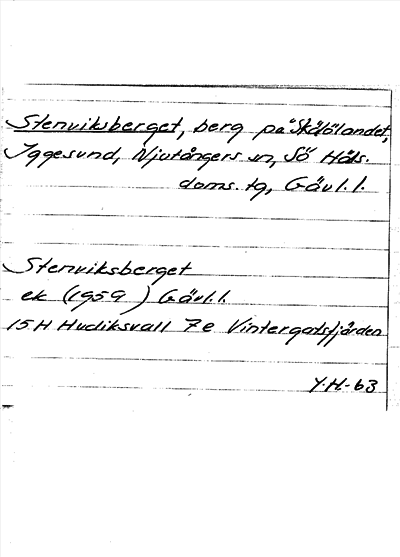 Stenviksberget, berg på Skålölandet,
Iggesund, Njutångers sn, Sö Häls.
doms. tg, Gävl. l.
Stenviksberget
ek (1959) Gävl. l.
15H Hudiksvall 7e Vintergatsfjärden
Y.H-63